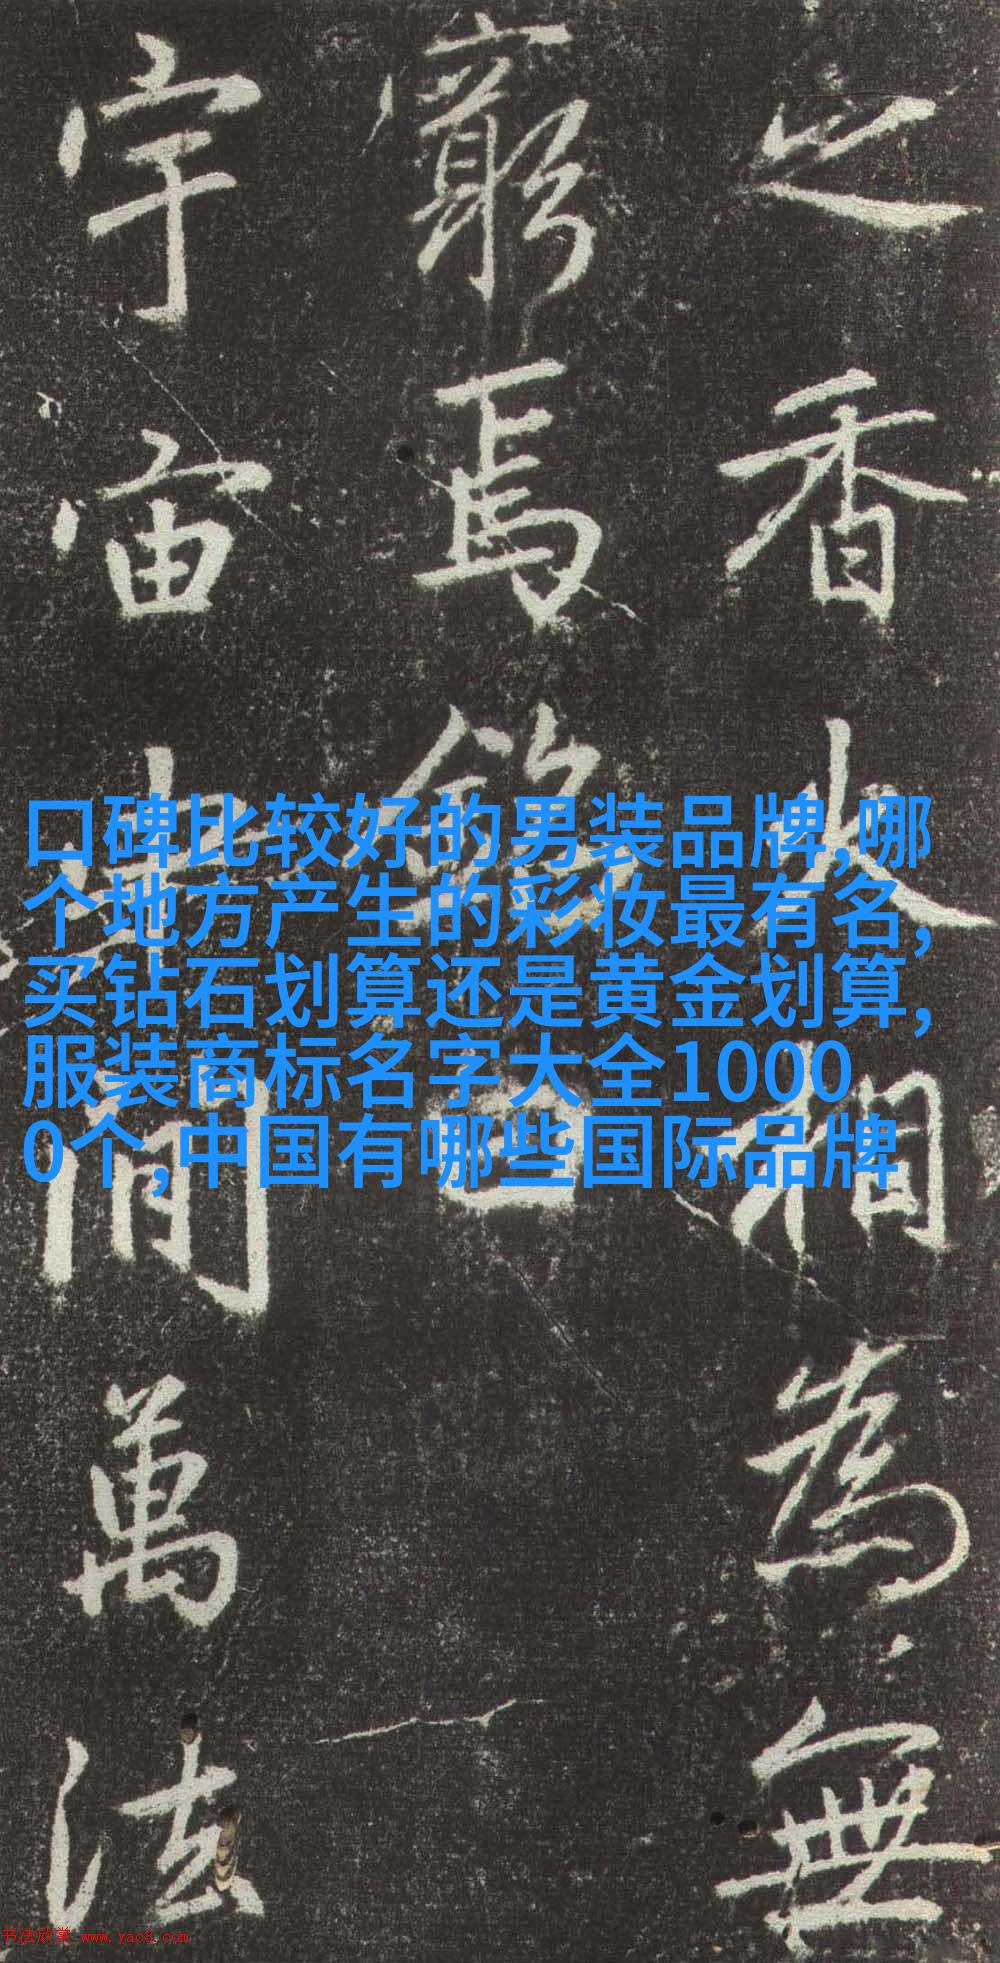 之香水相為無
窮焉銘曰
宇宙之間萬法
口碑比较好的男装品牌,哪
个地方产生的彩妆最有名,
买钻石划算还是黄金划算,
服装商标名字大全1000
0个,中国有哪些国际品牌
书法欣赏 www.yac8.com